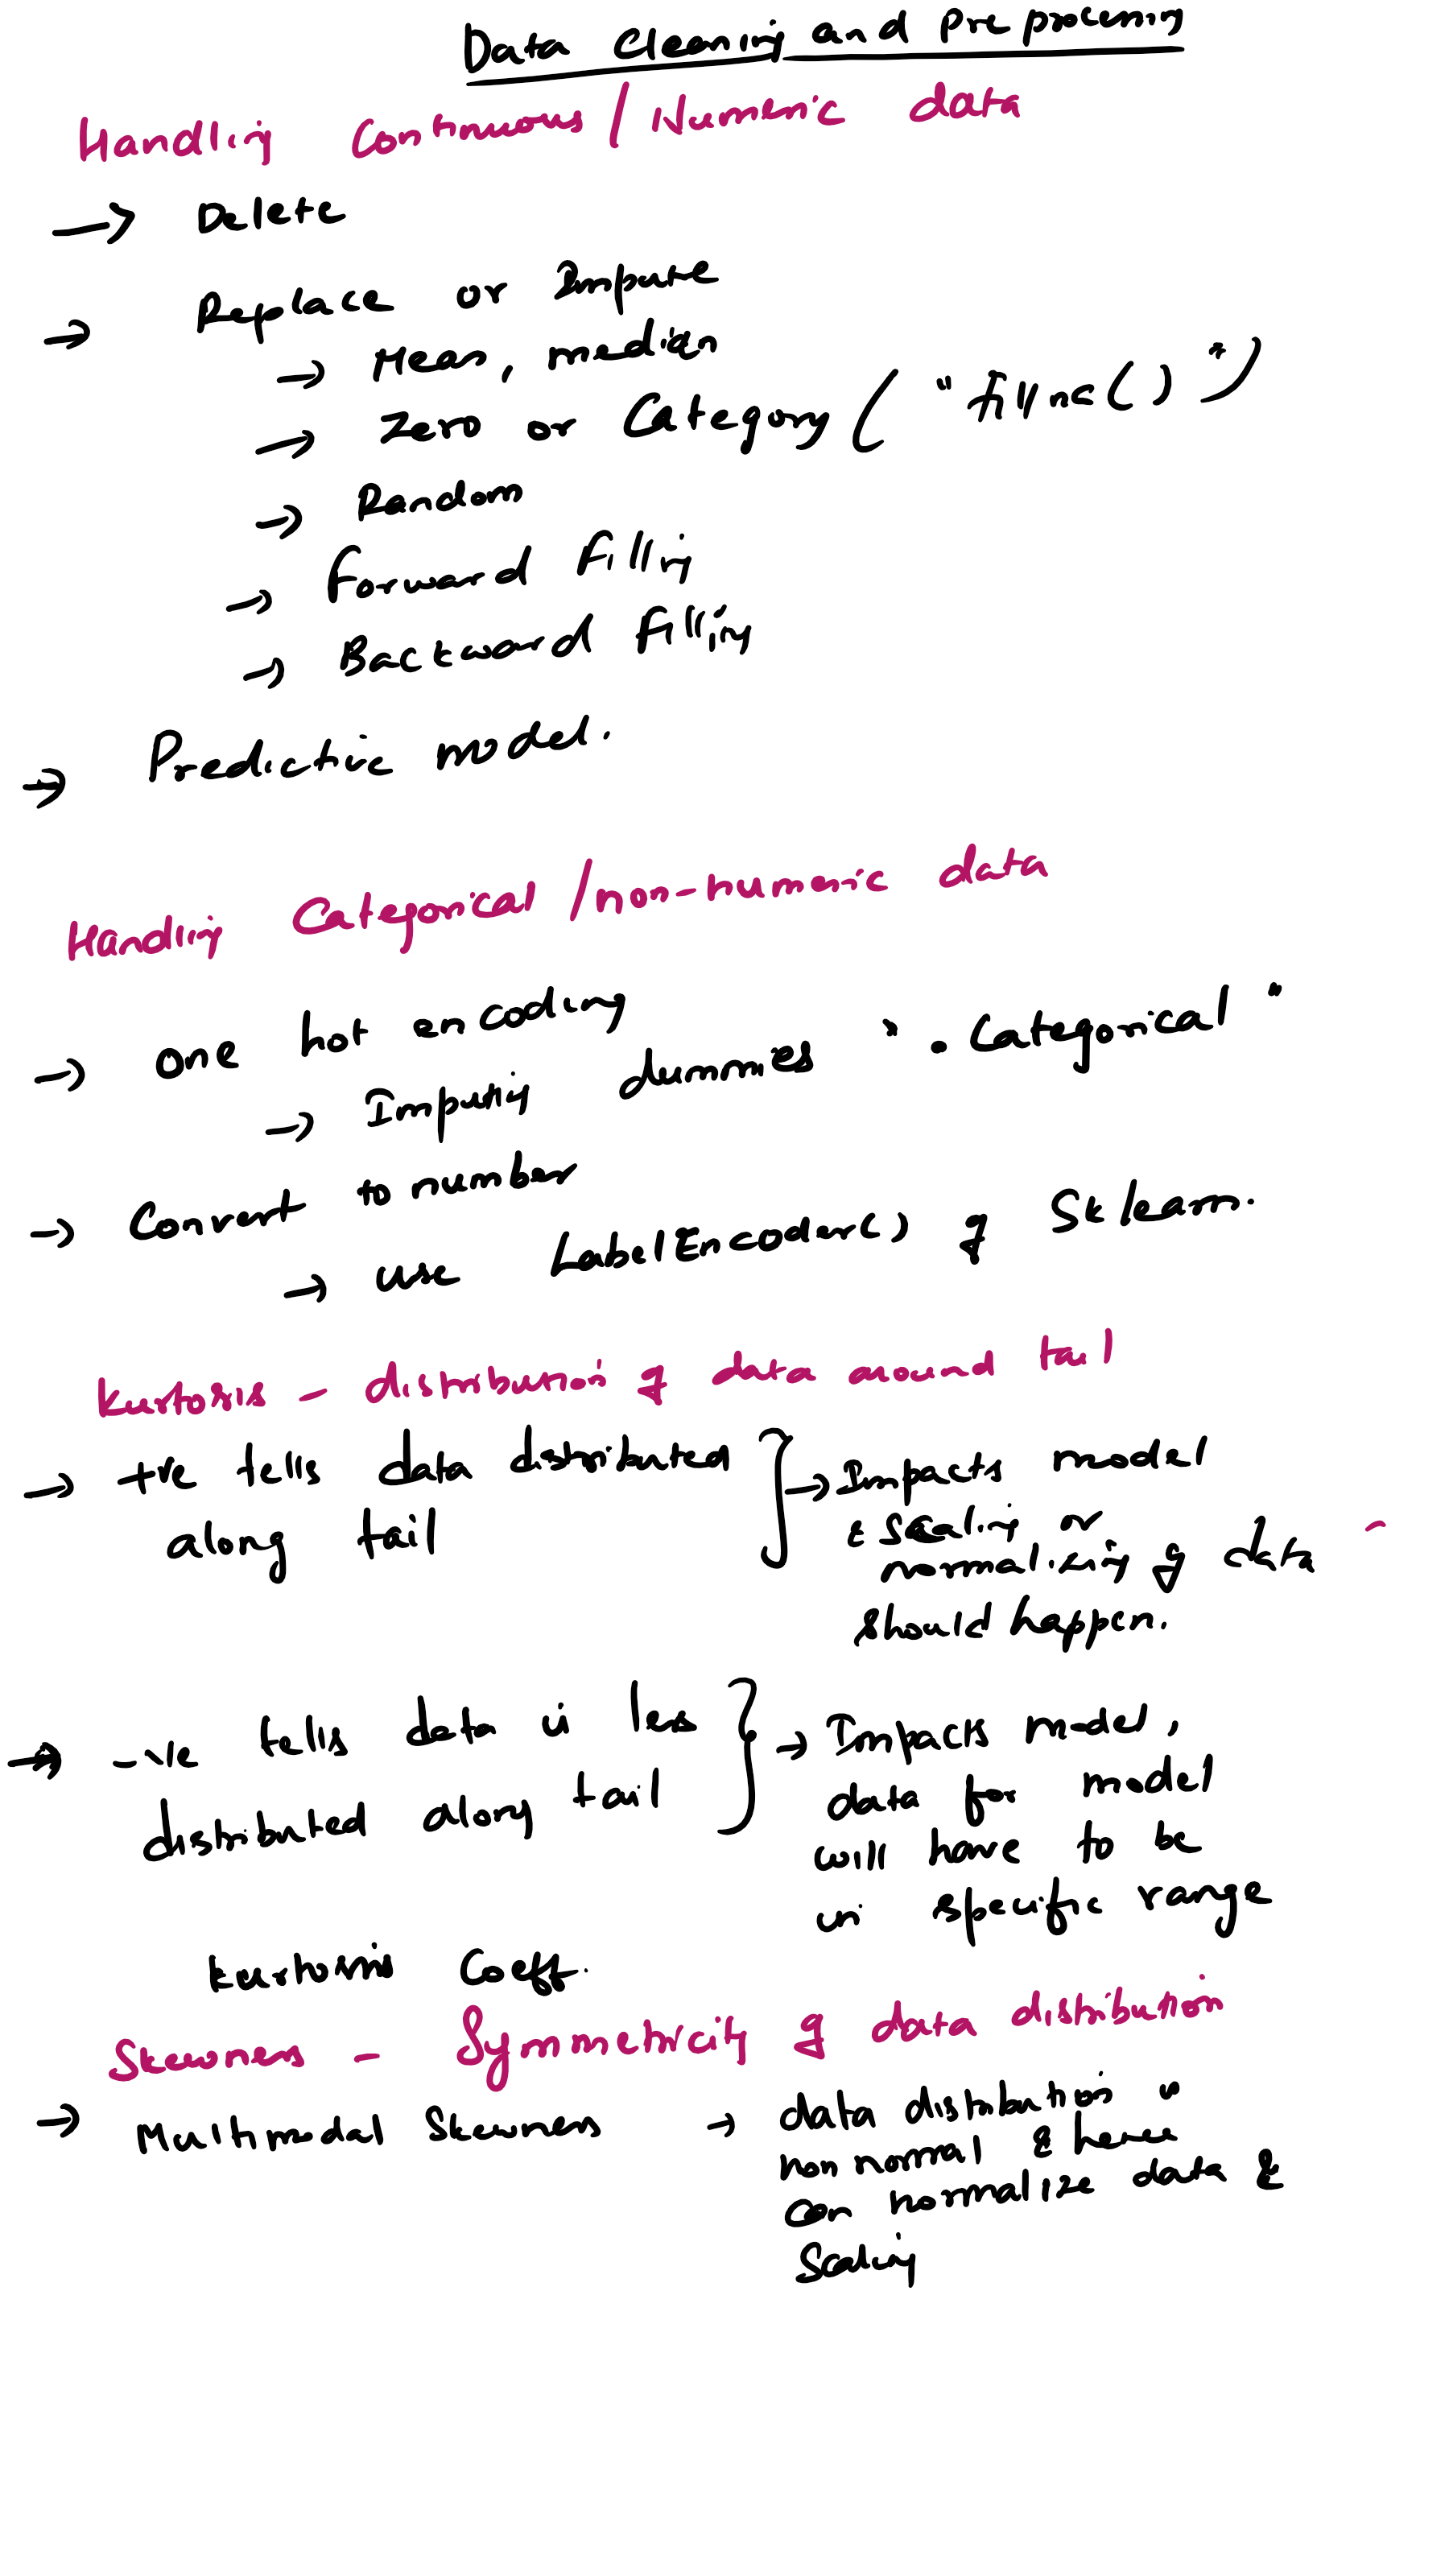 Data Cleaning and Preprocessing
Handling Continuous / Numeric data
→ Delete
→ Replace or Impute
→ Mean, median
→ Zero or Category ( "fillna()" )
→ Random
→ Forward Filling
→ Backward Filling
→ Predictive model.
Handling Categorical / non-numeric data
→ one hot encoding
→ Imputing dummies ".Categorical"
→ Convert to number
→ use LabelEncoder() of Sklearn.
Kurtosis - distribution of data around tail
→ +ve tells data distributed
along tail
→ Impacts model
& scaling or
normalizing of data
should happen.
→ -ve tells data is less
distributed along tail
→ Impacts model,
data for model
will have to be
in specific range
Kurtosis Coeff.
Skewness - Symmetricity of data distribution
→ Multimodal Skewness
→ data distribution is
non normal & hence
can normalize data &
Scaling